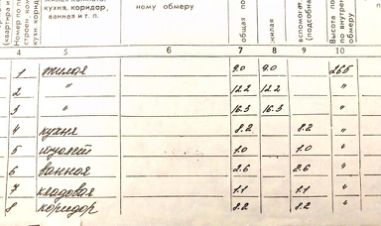 кухня, коридор,
ванная и т. п.
ному обмеру
общая
жилая
вспомогат
(подсобна
Высота по
по внутрен
обмеру
4 5 6 7 8 9 10
1 жилая 9.0 9.0 265
2 " 12.2 12.2 "
3 " 16.3 16.3 "
4 кухня 8.2 8.2 "
5 туалет 1.0 1.0 "
6 ванная 2.6 2.6 "
7 кладовая 1.1 1.1 "
8 коридор 8.2 8.2 "